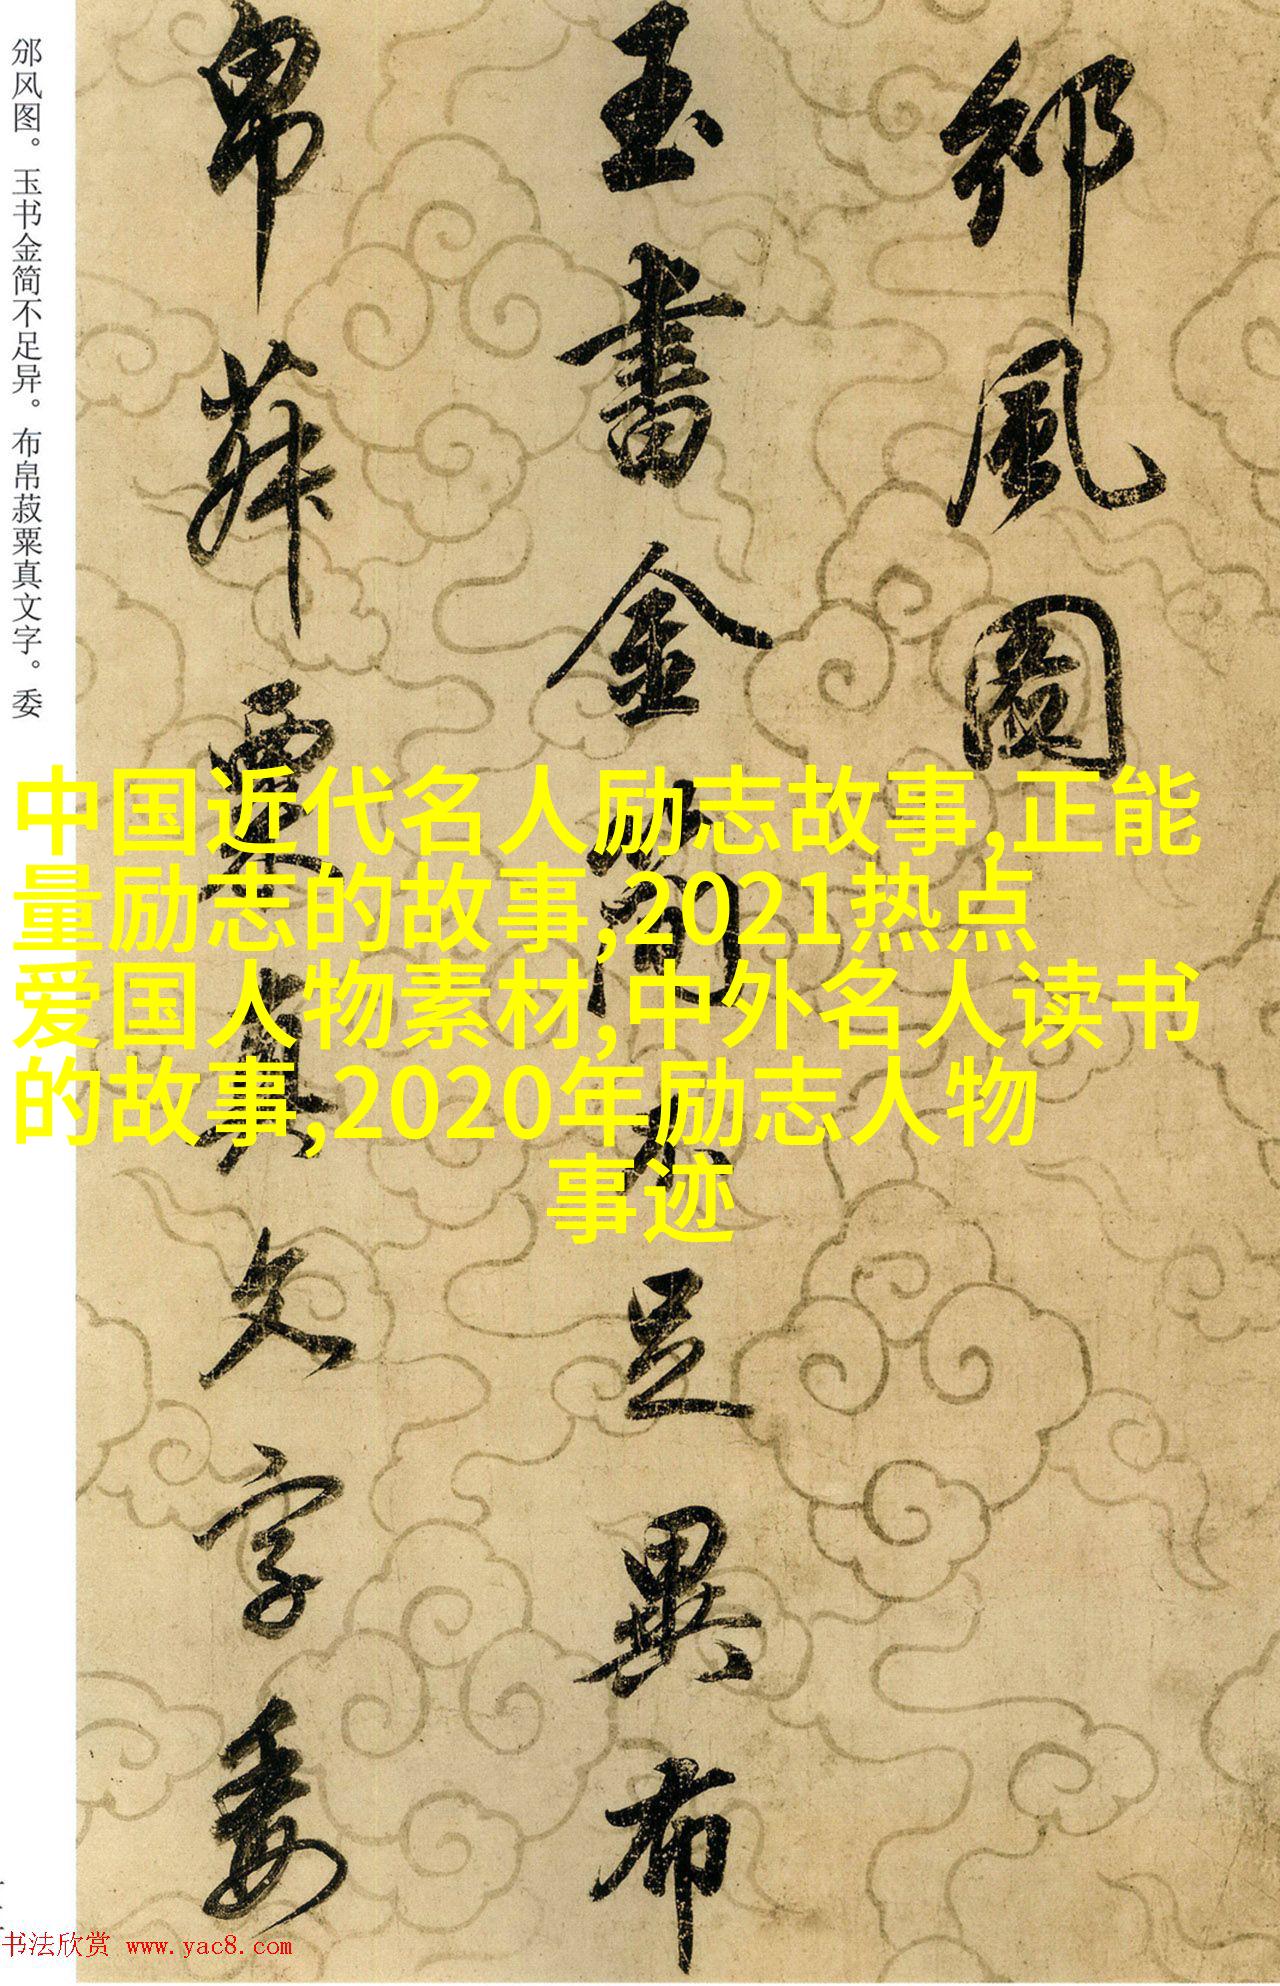 邠风图。玉书金简不足异。布帛菽粟真文字。委
邠風圖
玉書金簡不足異布
帛菽粟真文字委
中国近代名人励志故事,正能
量励志的故事,2021热点
爱国人物素材,中外名人读书
的故事,2020年励志人物
事迹
书法欣赏 www.yac8.com